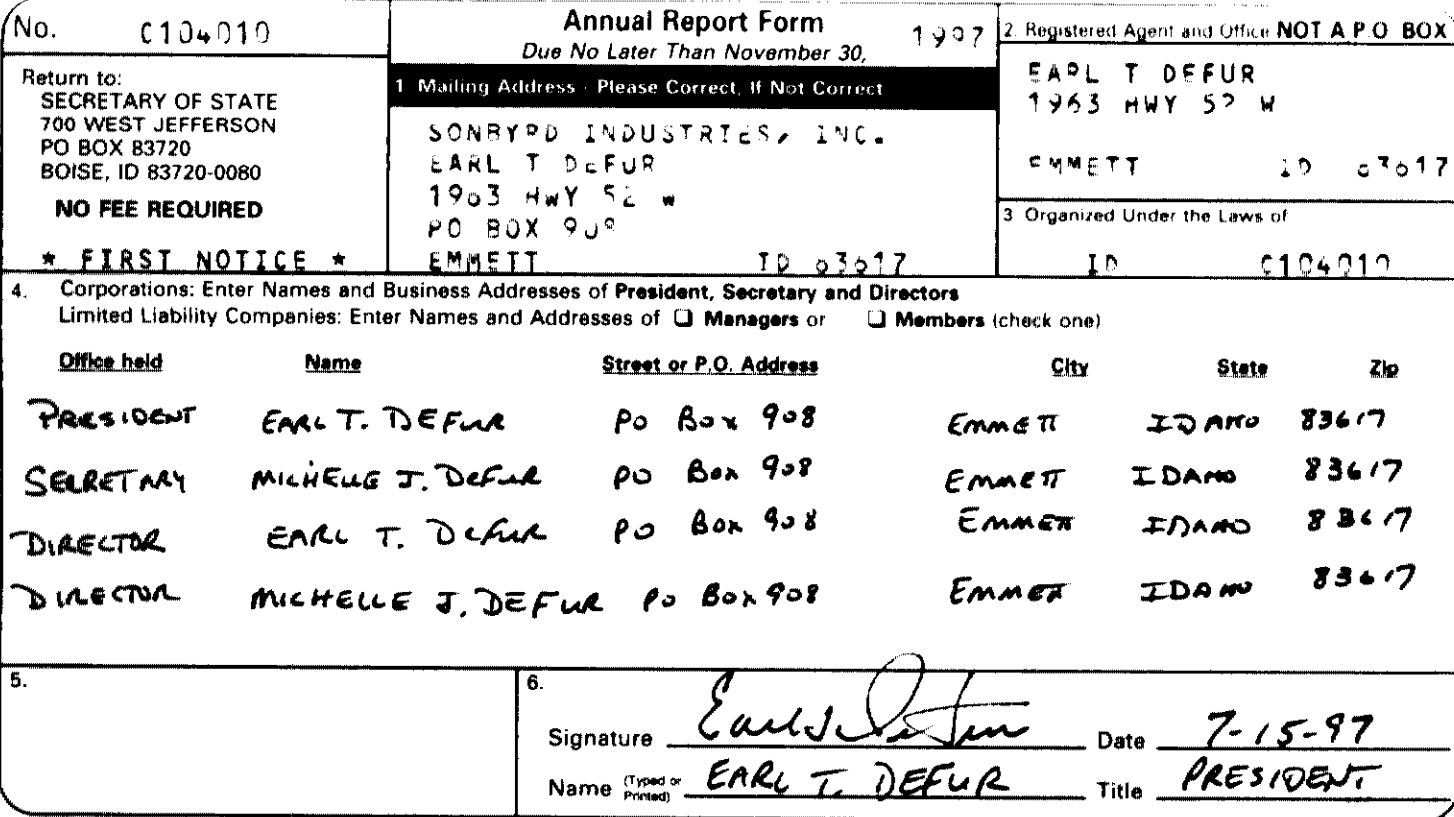 No. C104010
Annual Report Form 1997
Due No Later Than November 30,
Return to:
SECRETARY OF STATE
700 WEST JEFFERSON
PO BOX 83720
BOISE, ID 83720-0080
NO FEE REQUIRED
* FIRST NOTICE *
1 Mailing Address - Please Correct, If Not Correct
SONBYRD INDUSTRIES, INC.
EARL T DEFUR
1963 HWY 52 W
PO BOX 908
EMMETT ID 83617
2. Registered Agent and Office NOT A P.O BOX
EARL T DEFUR
1963 HWY 52 W
EMMETT ID 83617
3 Organized Under the Laws of
ID C104010
4. Corporations: Enter Names and Business Addresses of President, Secretary and Directors
Limited Liability Companies: Enter Names and Addresses of ❑ Managers or ❑ Members (check one)
Office held Name Street or P.O. Address City State Zip
PRESIDENT EARL T. DEFUR PO Box 908 EMMETT IDAHO 83617
SECRETARY MICHELLE J. DEFUR PO Box 908 EMMETT IDAHO 83617
DIRECTOR EARL T. DEFUR PO Box 908 EMMETT IDAHO 83617
DIRECTOR MICHELLE J. DEFUR PO Box 908 EMMETT IDAHO 83617
5.
6.
Signature Earl T. DeFur Date 7-15-97
Name (Typed or Printed) EARL T. DEFUR Title PRESIDENT